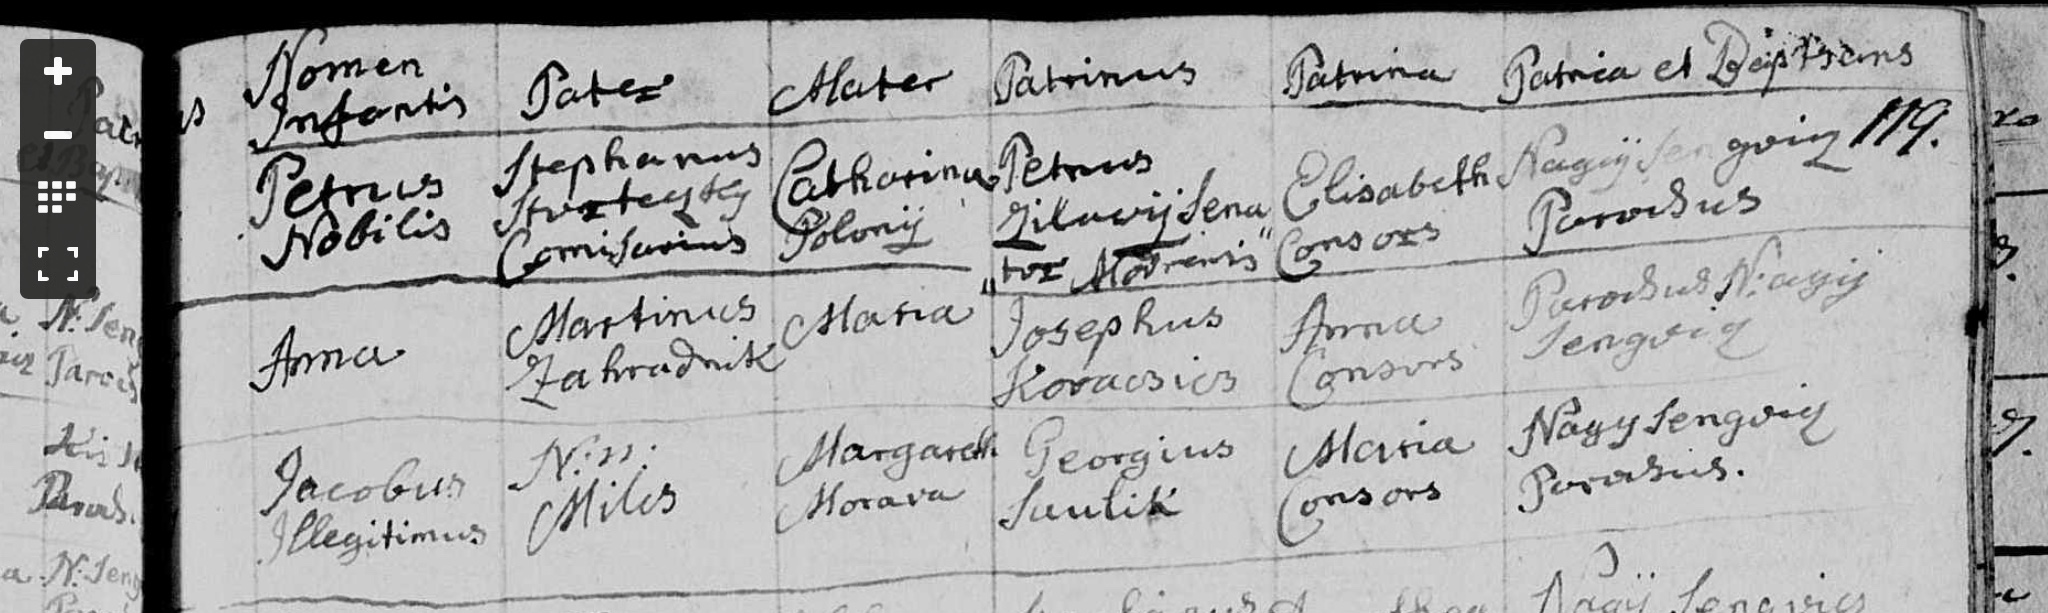 Nomen
Infantis
Pater
Mater
Patrinus
Patrina
Patria et Baptisans
119.
Petrus
Nobilis
Stephanus
Comisarius
Catharina
Polonÿ
Petrus
Sena
"tor Modrensis"
Elisabeth
Consors
Nagÿ Sengviz
Parochus
Anna
Martinus
Zahradnik
Maria
Josephus
Kovacsics
Anna
Consors
Parochus N:agÿ
Sengviz
Jacobus
Illegitimus
N: n:
Miles
Margareth
Morava
Georgius
Saulik
Maria
Consors
Nagy Sengviz
Parochus.
Nagÿ Sengvics